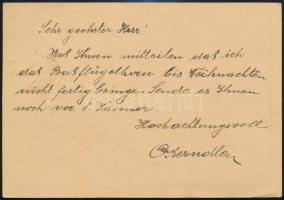 Sehr geehrter Herr!
Muß Ihnen mitteilen daß ich
daß Baßflügelhorn bis Weihnachten
nicht fertig bringe. Sende es Ihnen
noch vor 1. Jänner.
Hochachtungsvoll
Kerndler